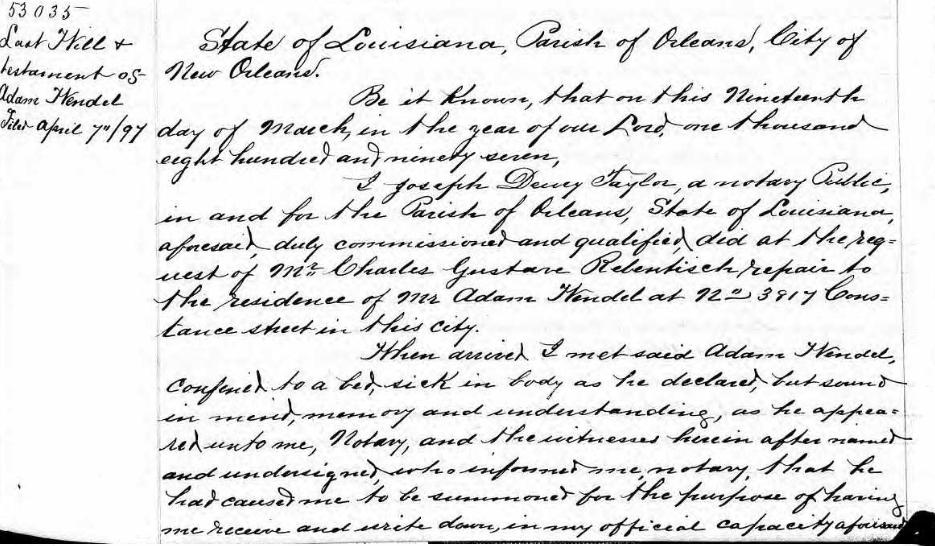 53035
Last Will &
testament of
Adam Wendel
Filed April 7"/97
State of Louisiana, Parish of Orleans, City of
New Orleans.
Be it Known, that on this Nineteenth
day of March, in the year of our Lord, one thousand
eight hundred and ninety seven,
I Joseph Deucy Taylor, a notary Public,
in and for the Parish of Orleans, State of Louisiana,
aforesaid, duly commissioned and qualified, did at the req=
uest of Mr. Charles Gustave Rebentisch, repair to
the residence of Mr Adam Wendel at No 3917 Cons=
tance street in this city.
When arrived I met said Adam Wendel,
confined to a bed, sick in body as he declared, but sound
in mind, memory and understanding, as he appea=
red unto me, Notary, and the witnesses herein after named
and undersigned, who informed me, notary, that he
had caused me to be summoned for the purpose of having
me receive and write down, in my official capacity aforesaid